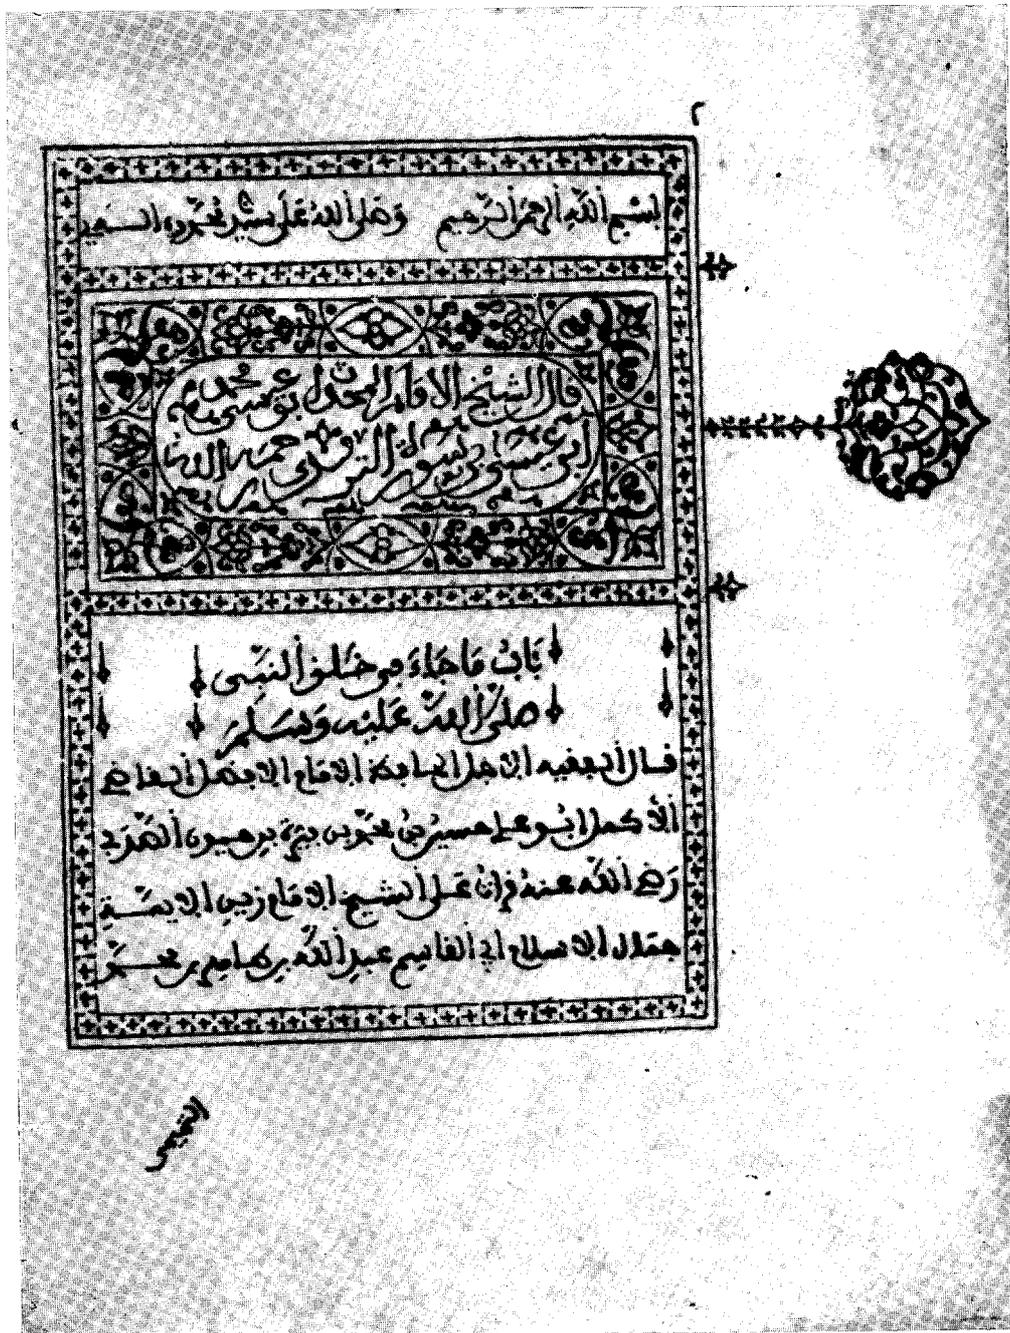 ٢
بسم الله الرحمن الرحيم وصلى الله على سيدنا محمد وآله
قال الشيخ الإمام أبو عيسى محمد بن
أبي عيسى بن سورة الترمذي رحمه الله
باب ما جاء في خلق النبي
صلى الله عليه وسلم
قال الفقيه الأجل الإمام الأفضل القاضي
الأكمل أبو علي حسين بن محمد بن
رضي الله عنه قرأت على الشيخ الإمام زين الأيمة
جمال الإسلام أبي القاسم عبد الله بن طاهر بن محمد
التميمي